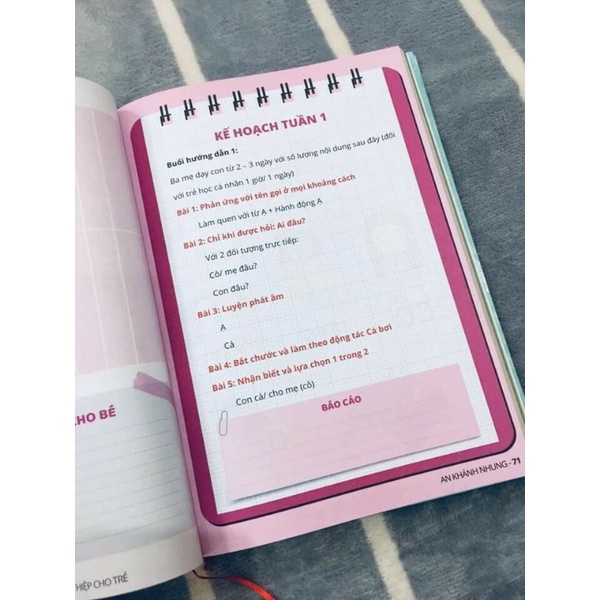 KẾ HOẠCH TUẦN 1
Buổi hướng dẫn 1:
Ba mẹ dạy con từ 2 – 3 ngày với số lượng nội dung sau đây (đối
với trẻ học cá nhân 1 giờ/ 1 ngày)
Bài 1: Phản ứng với tên gọi ở mọi khoảng cách
Làm quen với từ Ạ + Hành động Ạ
Bài 2: Chỉ khi được hỏi: Ai đâu?
Với 2 đối tượng trực tiếp:
Cô/ mẹ đâu?
Con đâu?
Bài 3: Luyện phát âm
Ạ
Cá
Bài 4: Bắt chước và làm theo động tác Cá bơi
Bài 5: Nhận biết và lựa chọn 1 trong 2
Con cá/ cho mẹ (cô)
BÁO CÁO
CHO BÉ
AN KHÁNH NHUNG - 71
HIỆP CHO TRẺ